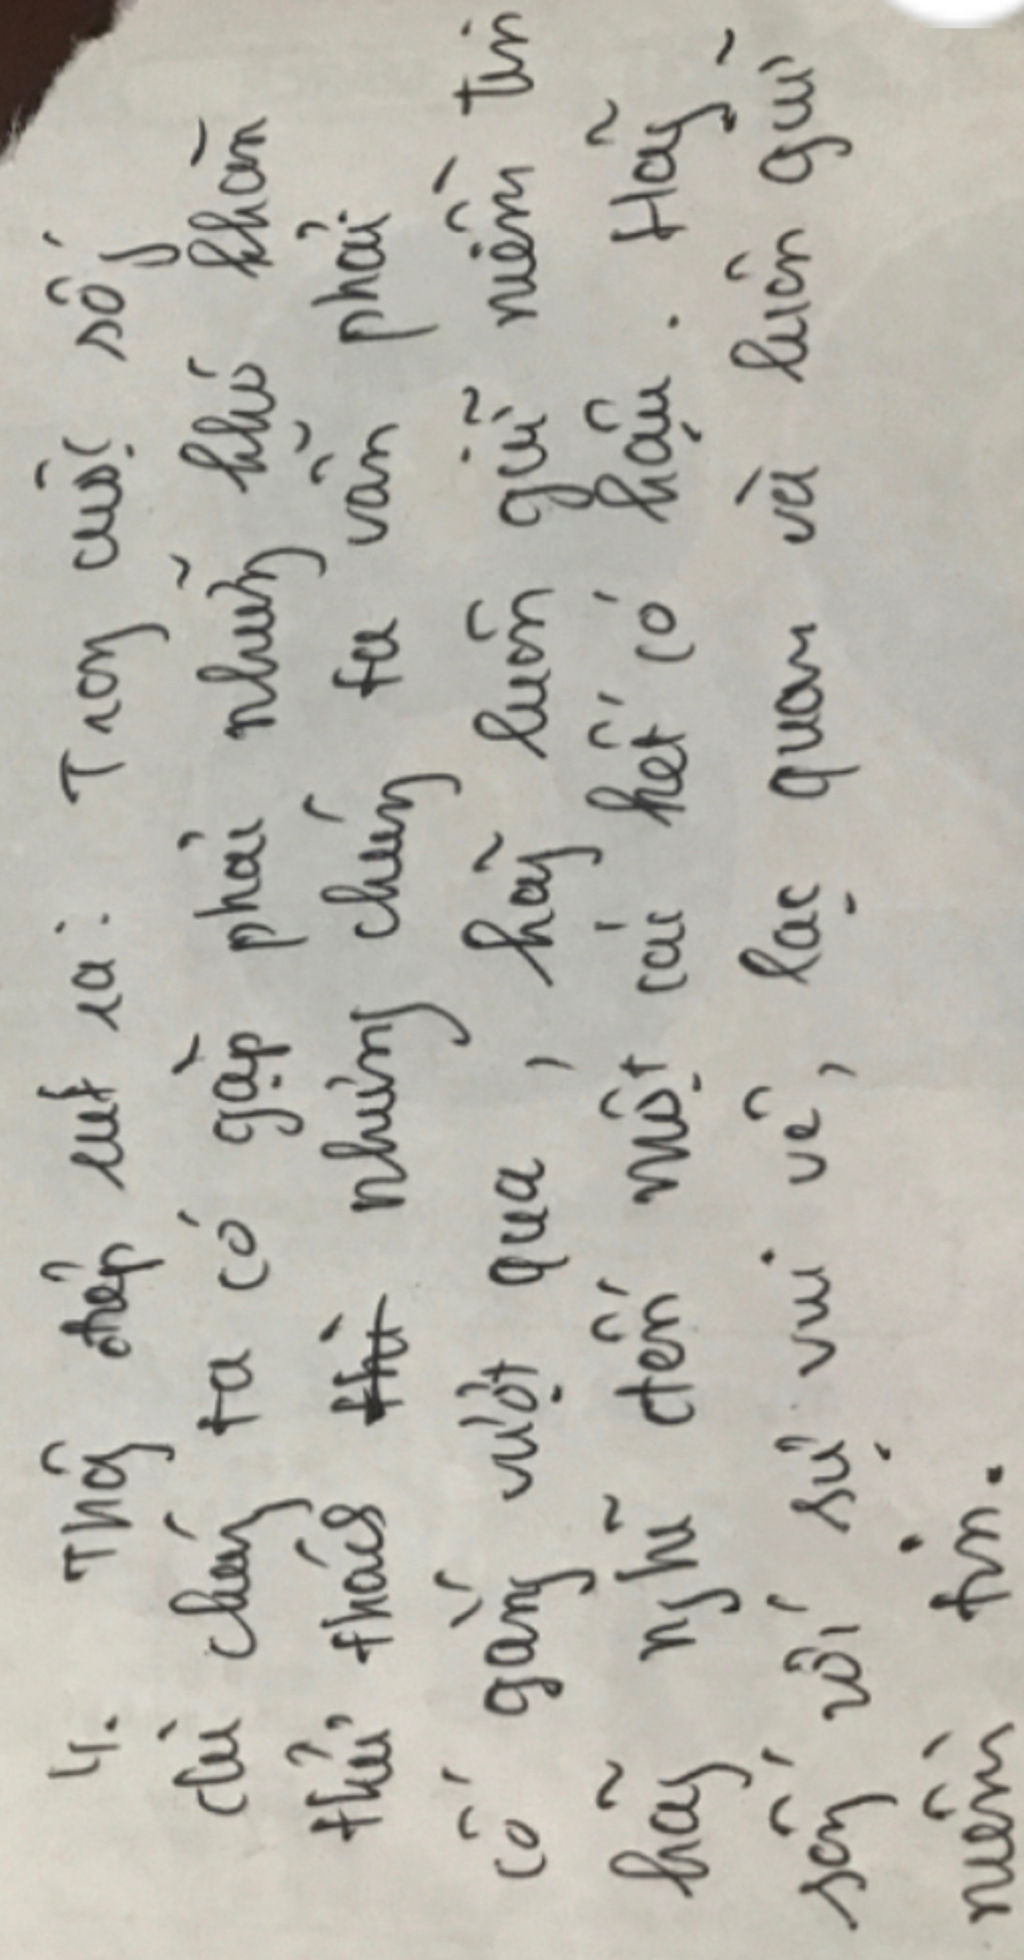 4. Thôg điệp rút ra: Trong cuộc sốg
dù chúng ta có gặp phải những khó khăn
thử thách thì nhưng chúng ta vẫn phải
cố gắng vượt qua, hãy luôn giữ niềm tin
hãy nghĩ đến một cái kết có hậu. Hãy
sống với sự vui vẻ, lạc quan và luôn giữ
niềm tin.